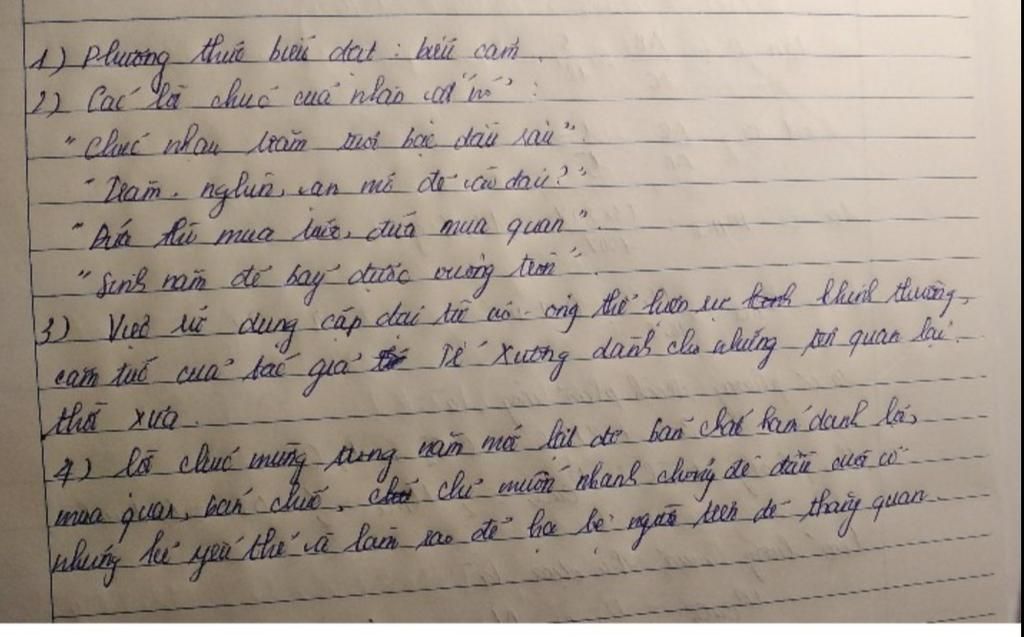 1) Phương thức biểu đạt : biểu cảm.
2) Các lời chúc của nhân vật "nó" :
"Chúc nhau trăm tuổi bạc đầu râu".
"Trăm, nghìn, vạn mớ để vào đâu?"
"Đứa thì mua tước, đứa mua quan".
"Sinh năm đẻ bảy được vuông tròn".
3) Việc sử dụng cặp đại từ nó - ông thể hiện sự khinh thường,
căm tức của tác giả Tế Xương dành cho những tên quan lại
thời xưa.
4) lời chúc mừng trong năm mới lột tả bản chất bán danh lợi,
mua quan, bán chức, chỉ muốn nhanh chóng đè đầu cưỡi cổ
những kẻ yếu thế và làm sao để hạ bệ người trên để thăng quan.